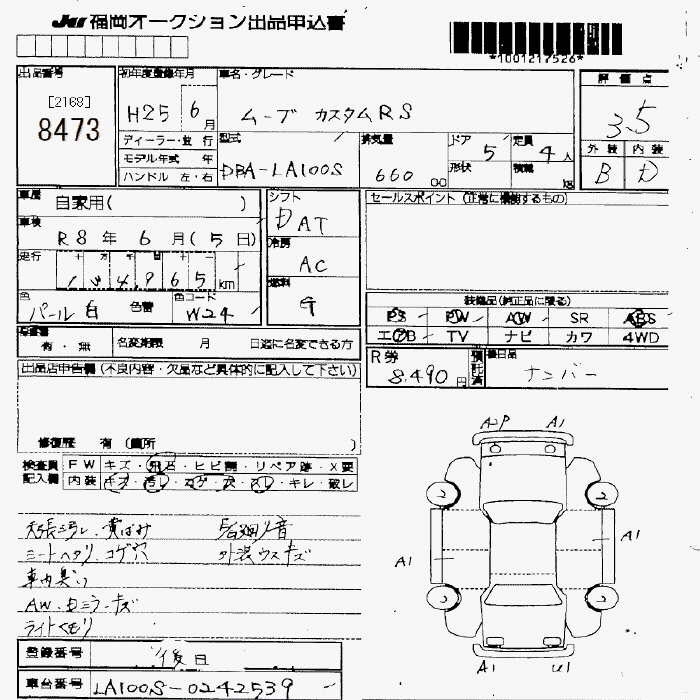 JU 福岡オークション出品申込書
*1001217526*
出品番号
[2168]
8473
初年度登録年月
H25 6月
車名・グレード
ムーブ カスタムRS
評価点
3.5
外装 内装
B D
ディーラー・並行
モデル年式 年
ハンドル 左・右
型式
DBA-LA100S
排気量
660
ドア 5
形状
定員 4人
積載 kg
車歴 自家用( )
車検
R8年 6月(5日)
走行
十万千百十
4,965km
色
パール白 色替
色コード W24
シフト
DAT
冷房
AC
燃料
G
セールスポイント(正常に機能するもの)
装備品(純正品に限る)
PS PW AW SR ABS
エアB TV ナビ カワ 4WD
有・無
名変期限 月 日迄に名変できる方
R券
8,490円
預託済
後日品
ナンバー
出品店申告欄(不良内容・欠品など具体的に記入して下さい)
修復歴 有(箇所 )
検査員記入欄
FW キズ・飛石・ヒビ割・リペア跡・X要
内装 キズ・汚レ・コゲ・穴・スレ・キレ・破レ
A2P A1
A1
A1
A1 U1
2 2
2 2
シートヘタリ.コゲ穴 外装ウスキズ
車内臭い
AW.ミラーキズ
ライトくもり
登録番号 後日
車台番号 LA100S-0242539